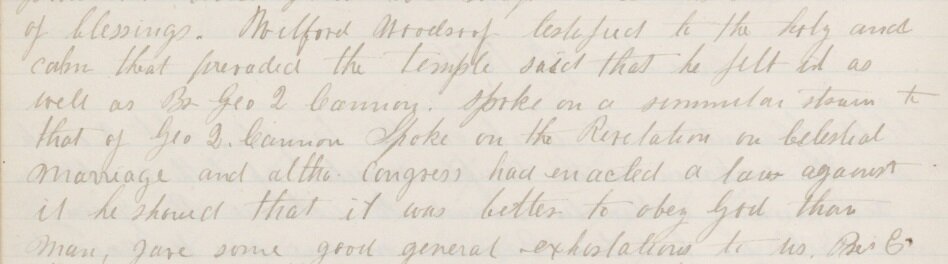 of blessings. Wilford Woodruf testified to the holy and
calm that pervaded the temple said that he felt it as
well as Br Geo Q Cannon. Spoke on a simmular strain to
that of Geo Q. Cannon Spoke on the Revelation on Celestial
Marriage and altho. Congress had enacted a law against
it he should that it was better to obey God than
man, gave some good general exhortations to us. Br E